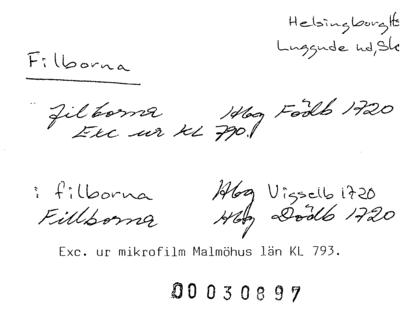 Helsingborg
Luggude hd, Sk
Filborna
filborna Hbg Födb 1720
Exc ur KL 790.
i filborna Hbg Vigselb 1720
Fillborna Hbg Dödb 1720
Exc. ur mikrofilm Malmöhus län KL 793.
00030897